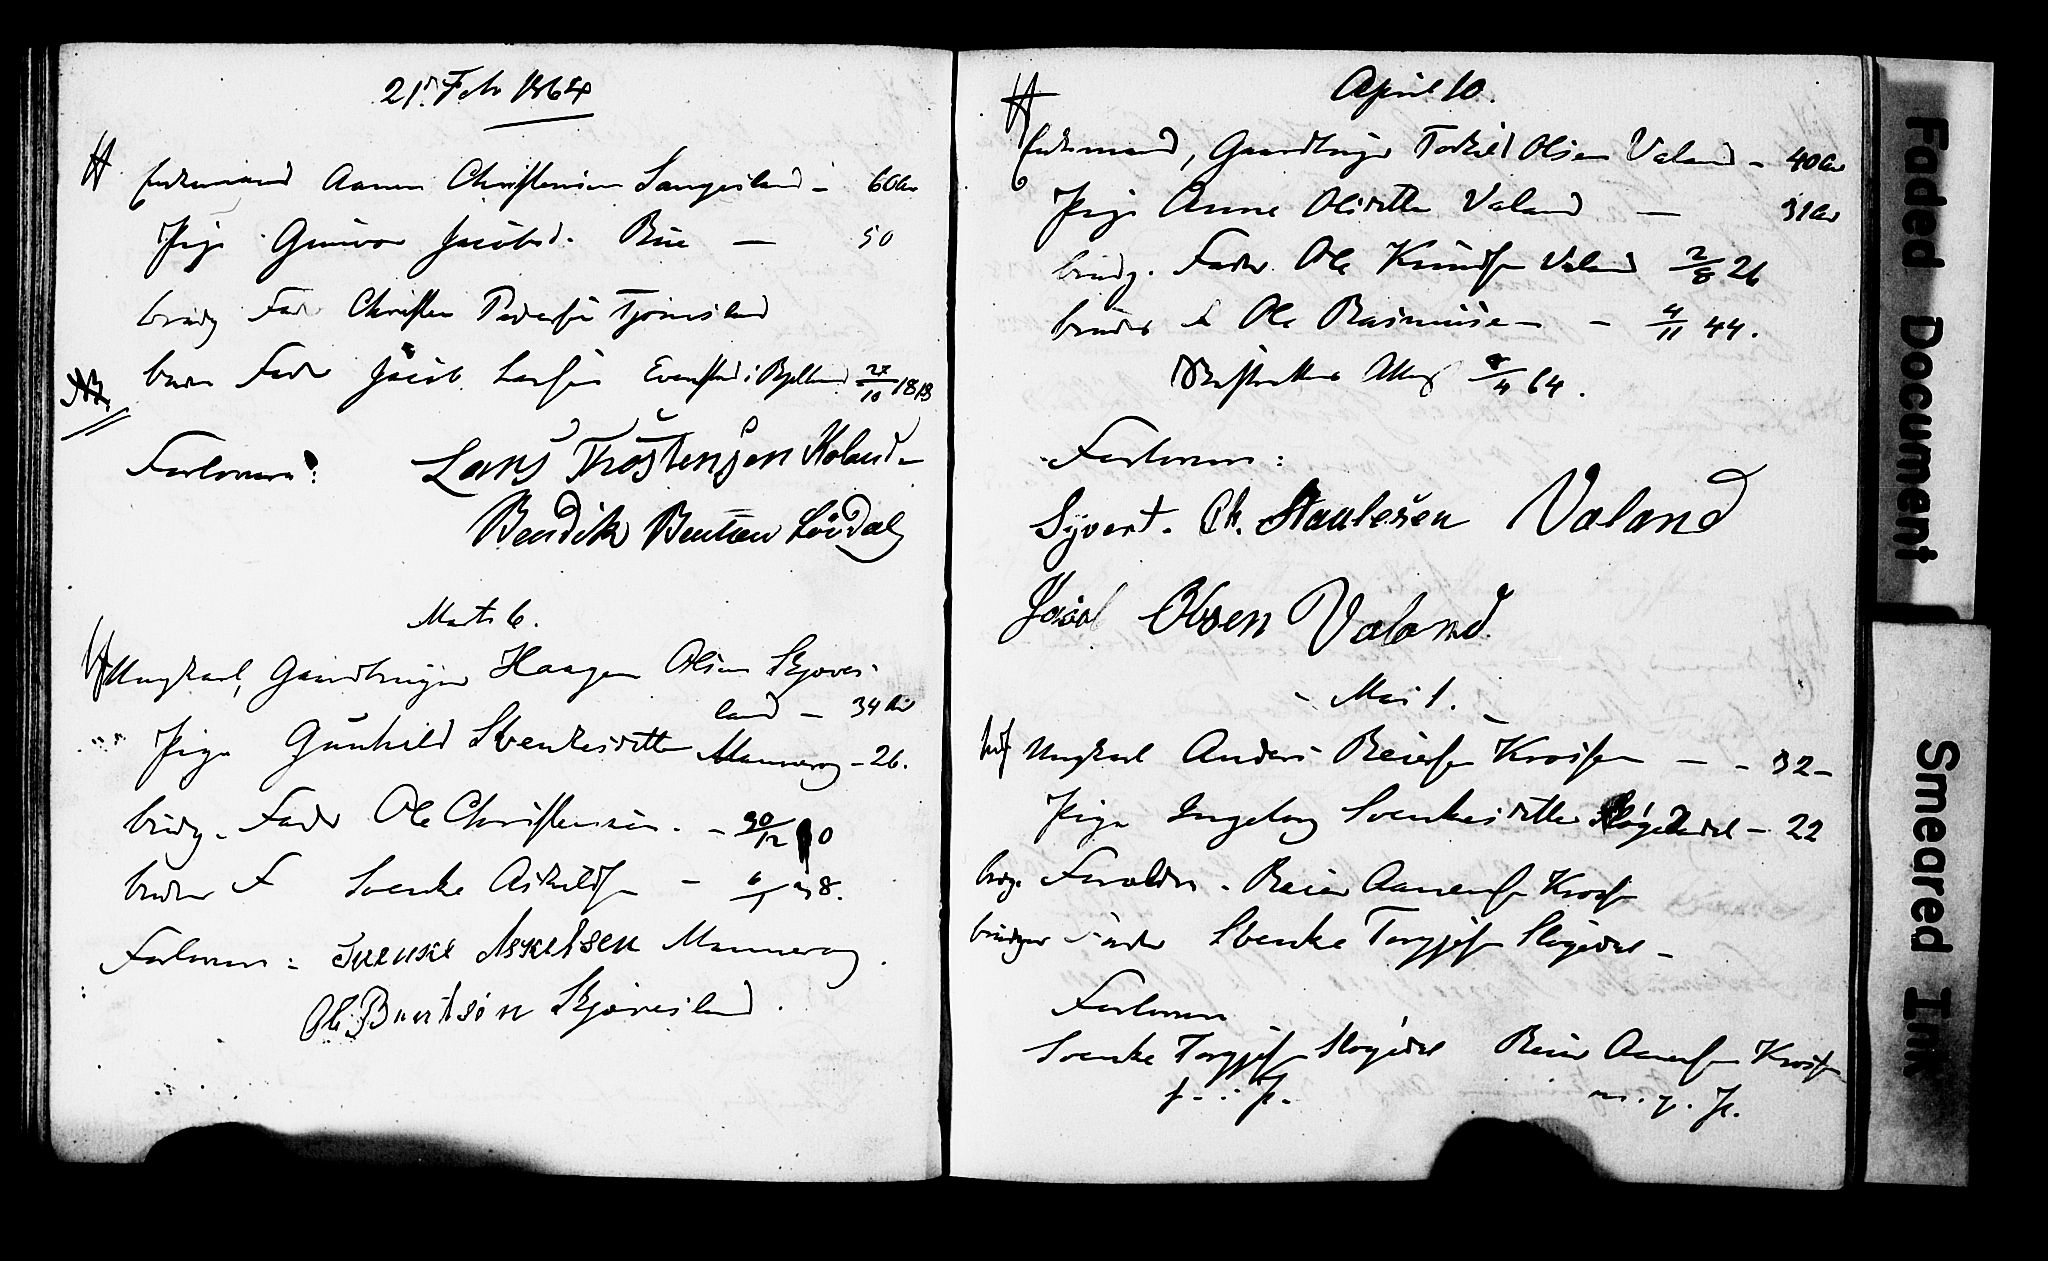 21de Feb 1864
Enkemand Aanen Christensen Saugesland - 60 Aar
Pige Gunvor Jacobsd. Bue — 50
brudg Fader Christen Pedersen Tjomsland
brudens Fader Jacob Larsen Evensstad i Bjelland 27/10 1813
Forlovere: Lars Trostensen Holand
Bendik Bentsen Løvdal
Marts 6.
Ungkarl, Gaardbruger Haagen Olsen Skjeves-
land — 34 Aar
Pige Gunhild Svenkesdatter Mannerog - 26.
brudg. Fader Ole Christensen - 30/12 0
brudens F Svenke Askeldsen - 38.
Forlovere: Svenke Askelsen Mannerog.
Ole Berntsøn Skjøvesland.
April 10.
Enkemand, Gaardbruger Torkild Olsen Valand - 40 Aar
Pige Anne Olsdatter Valand — 31 Aar
brudg. Fader Ole Knudsen Valand 2/8 26
brudens F Ole Rasmusen - 4/11 44.
Skifteretten Attest /4 64.
Forlovere:
Syvert. Ch. Staulesen Valand
Jacob Olsen Valand.
- Mai 1. -
Ungkarl Anders Reiersen Krossen - - 32 -
Pige Ingeborg Svenkesdatter Sløgedal - 22
brudg. Forældre. Reier Aanensen Krossen
Fader Svenke Torgjesen Sløgedal -
Forlovere
Svenke Torgjesen Sløgedal Reier Aanensen Krossen
m. p. P.
Faded Document
Smeared Ink